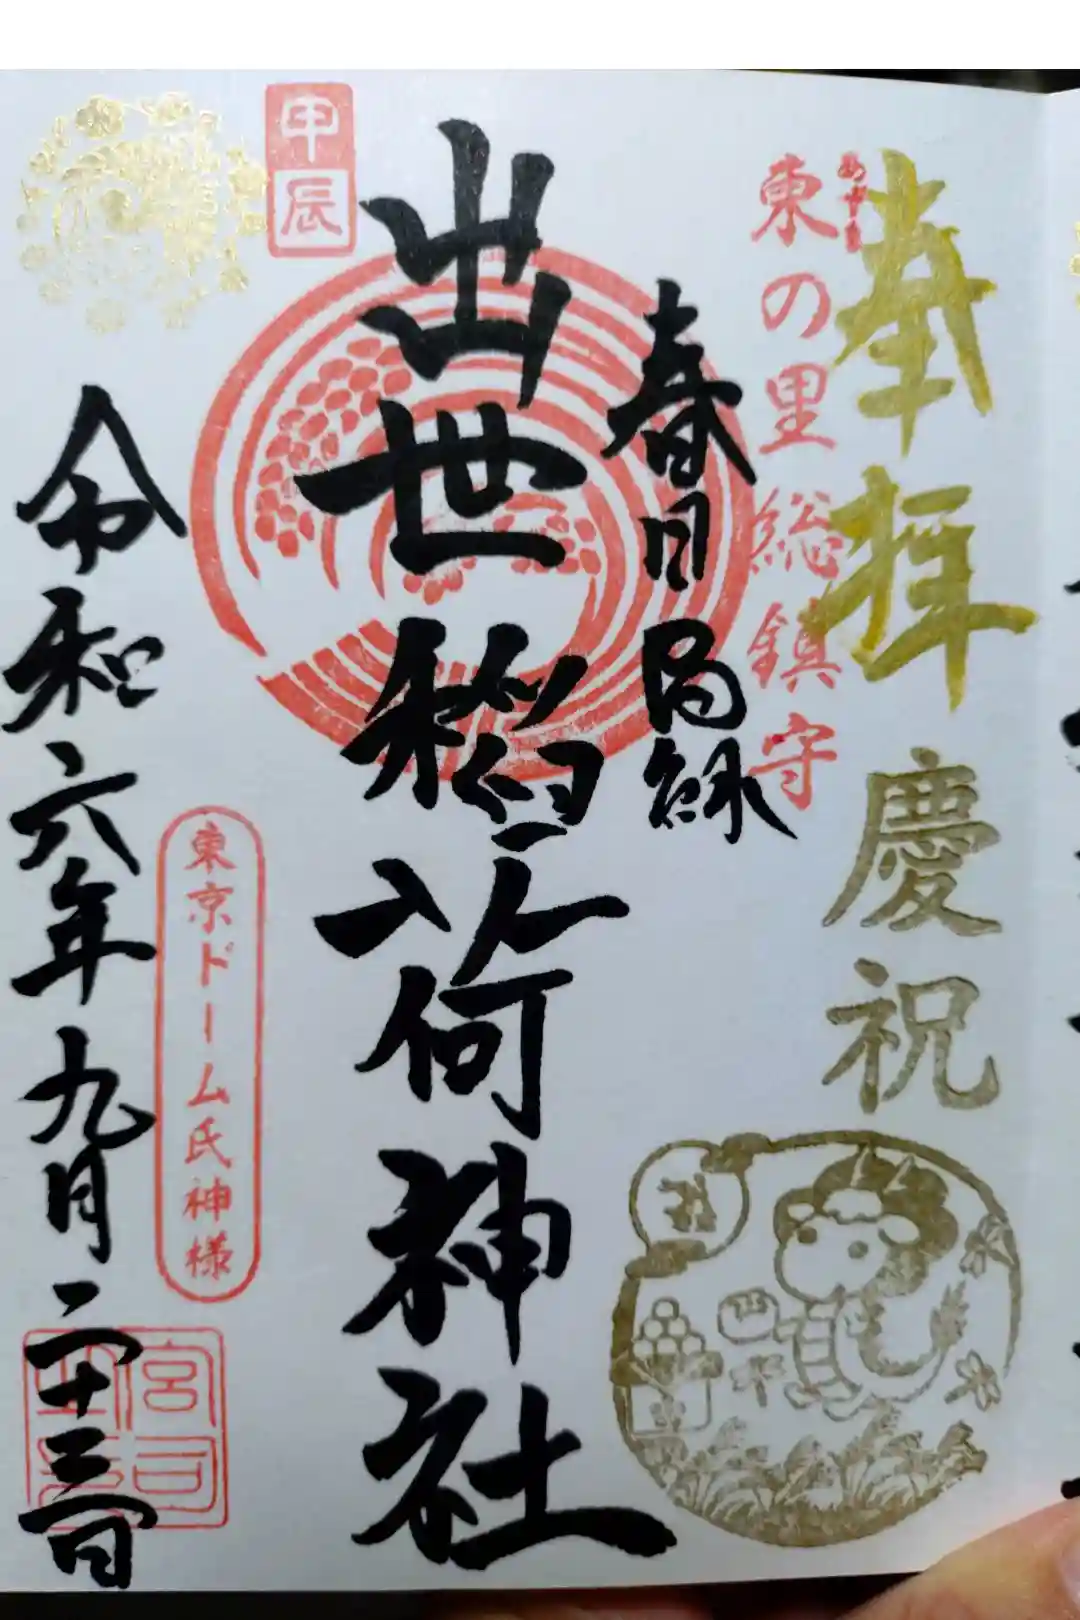 奉拝
慶祝
あずま
東の里総鎮守
春日局縁
出世稲荷神社
甲辰
東京ドーム氏神様
令和六年九月二十三日
宮司